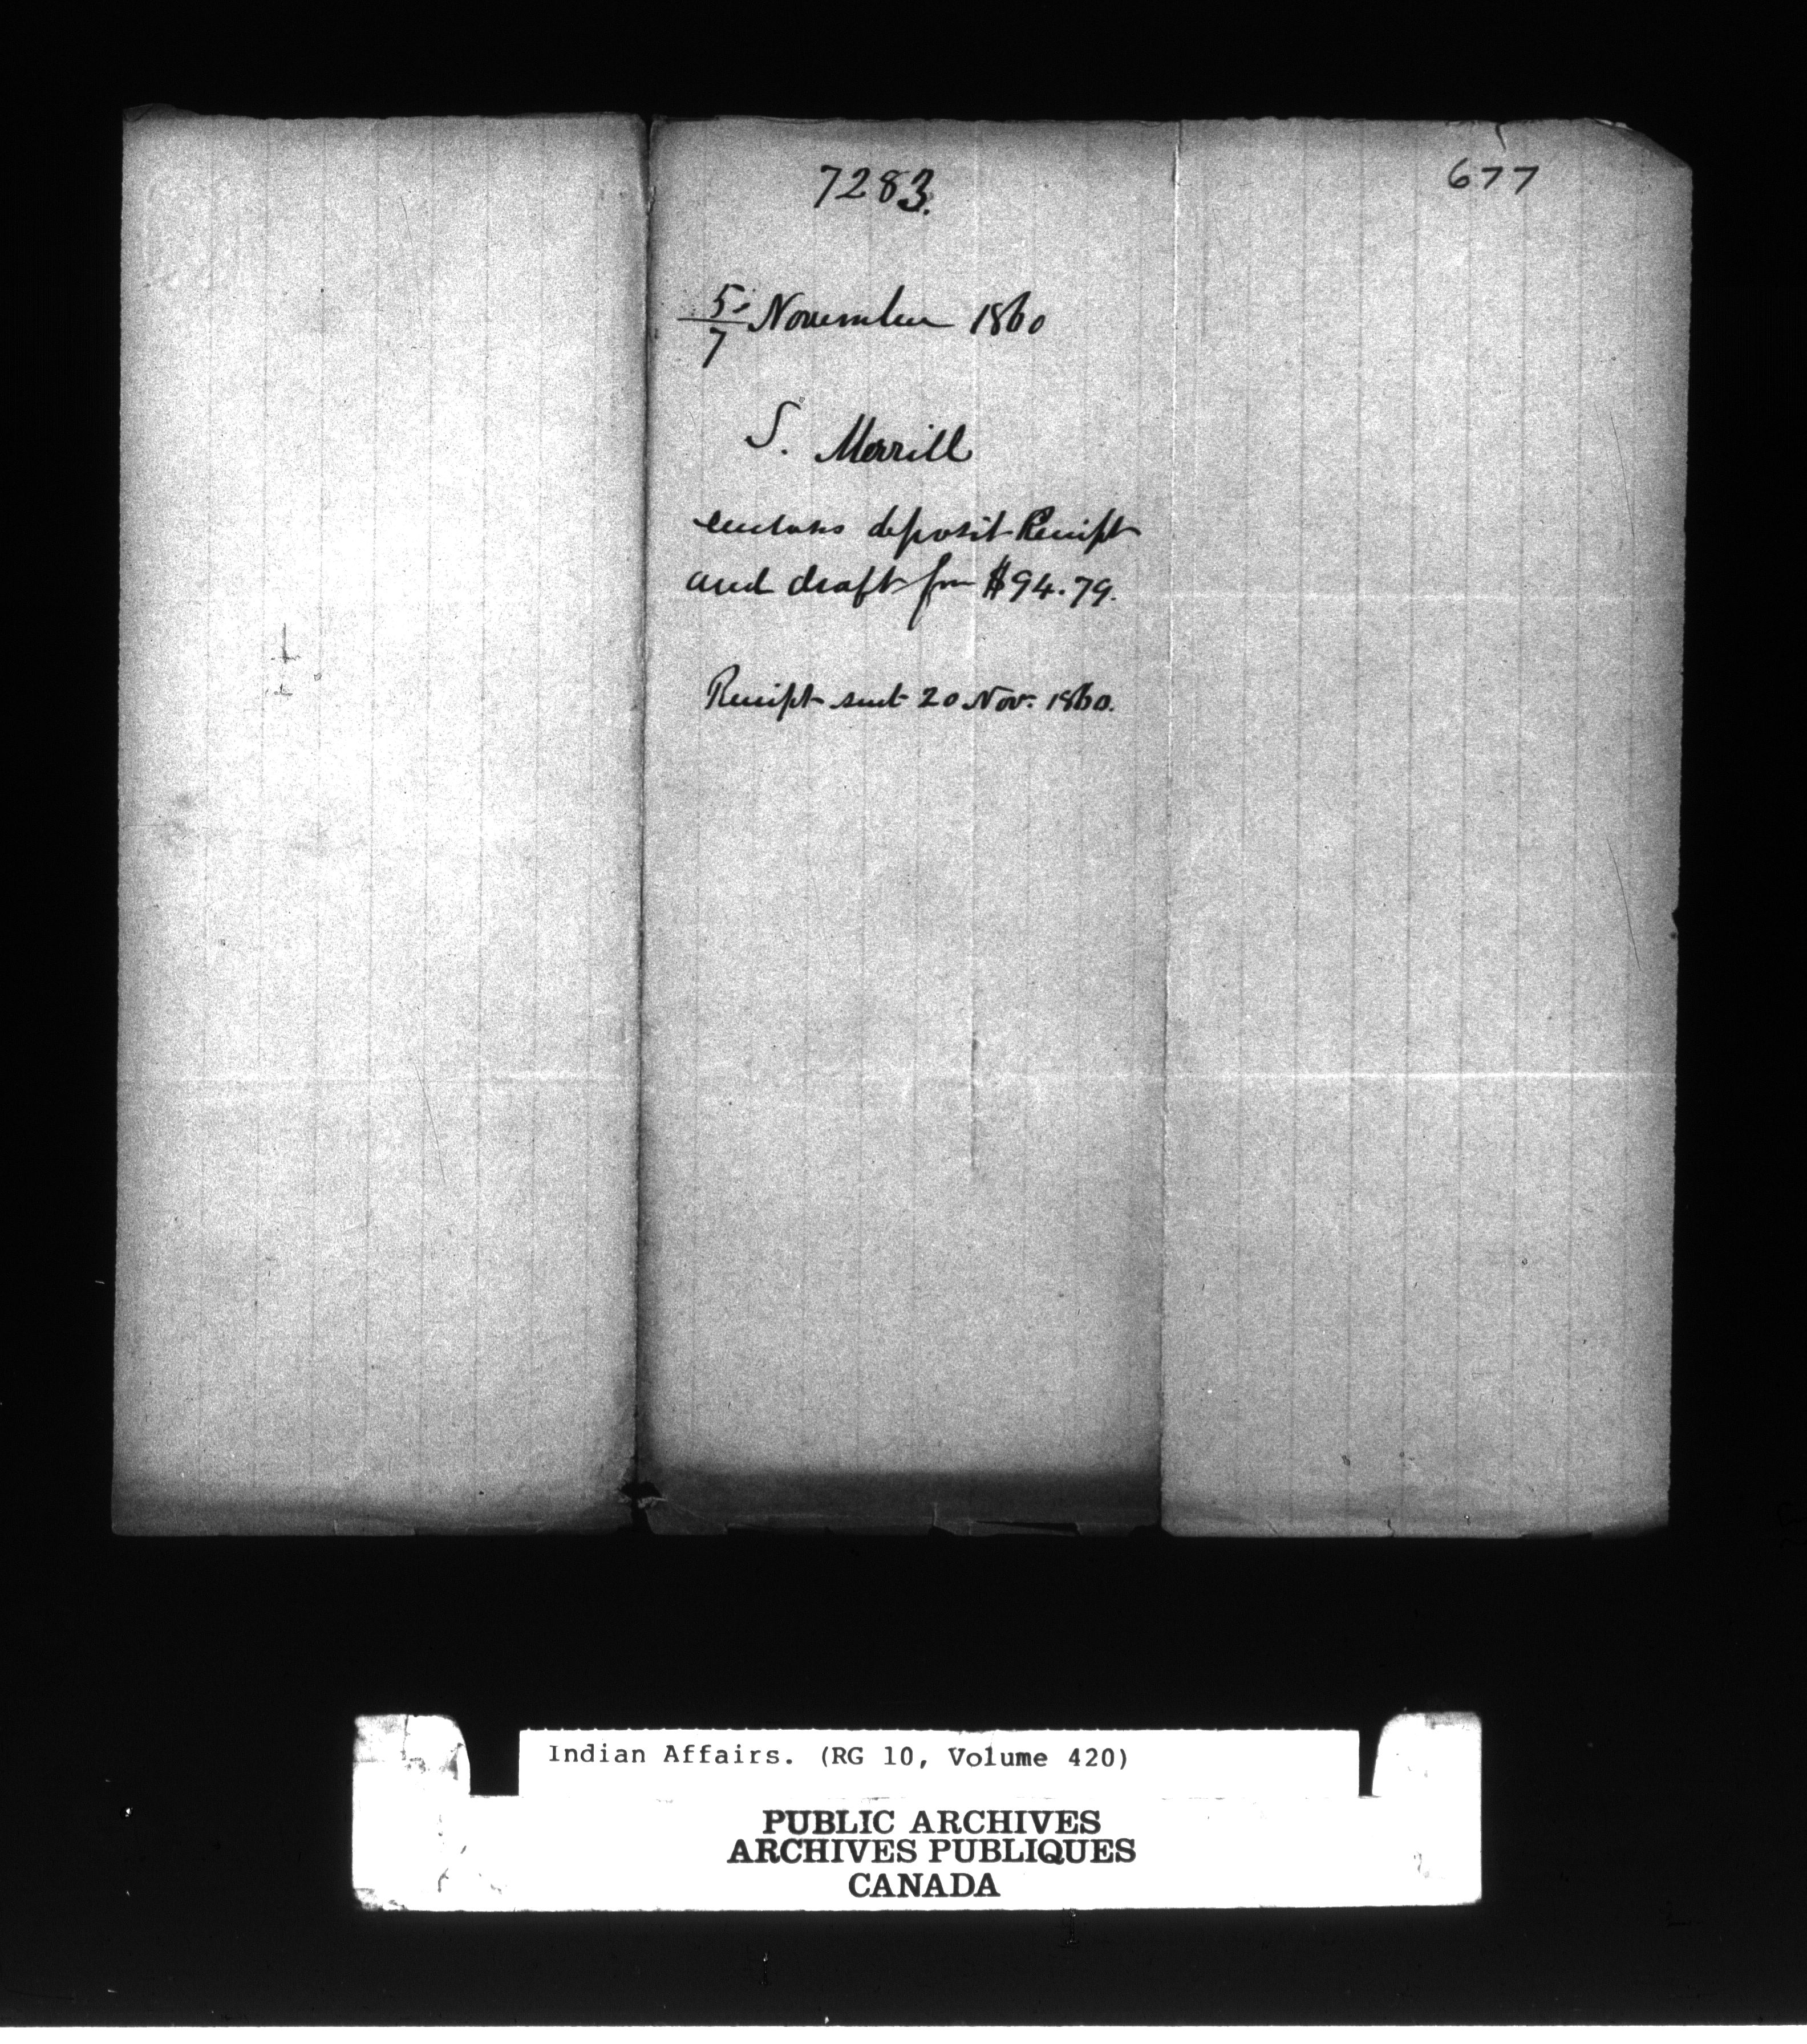 7283.
677
5/7 November 1860
S. Morrill
encloses deposit Receipt
and draft for $94.79.
Receipt sent 20 Nov. 1860.
Indian Affairs. (RG 10, Volume 420)
PUBLIC ARCHIVES
ARCHIVES PUBLIQUES
CANADA